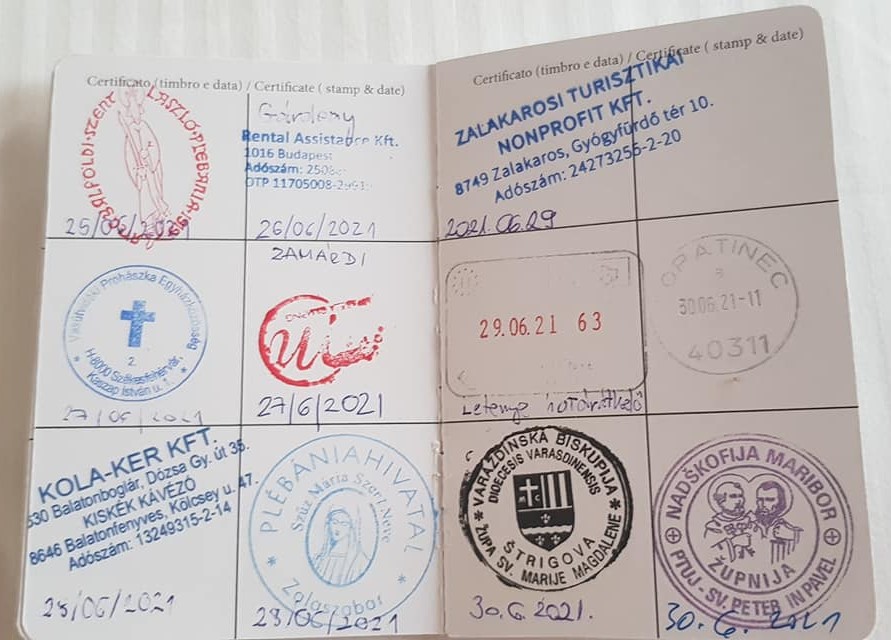 Certificato (timbro e data) / Certificate ( stamp & date)
25/06/2021
Gárdony
Rental Assistance Kft.
1016 Budapest
Adószám:
OTP 11705008
26/06/2021
Prohászka
2.
H-8000 Székesfehérvár,
Kaszap István u. 1.
27/06/2021
ZAMÁRDI
27/6/2021
KOLA-KER KFT.
Balatonboglár, Dózsa Gy. út 35.
KISKÉK KÁVÉZÓ
8646 Balatonfenyves, Kölcsey u. 47.
Adószám: 13249315-2-14
28/06/2021
PLÉBÁNIAHIVATAL
Szűz Mária Szent Neve
Zalaszabar
28/06/2021
Certificato (timbro e data) / Certificate ( stamp & date)
ZALAKAROSI TURISZTIKAI
NONPROFIT KFT.
8749 Zalakaros, Gyógyfürdő tér 10.
Adószám: 24273256-2-20
2021.06.29
29.06.21 63
Letenye
GRATINEC
30.06.21-11
40311
VARAŽDINSKA BISKUPIJA
DIOECESIS VARASDINENSIS
ŠTRIGOVA
ŽUPA SV. MARIJE MAGDALENE
30.6.2021.
NADŠKOFIJA MARIBOR
ŽUPNIJA
PTUJ - SV. PETER IN PAVEL
30. 6. 2021